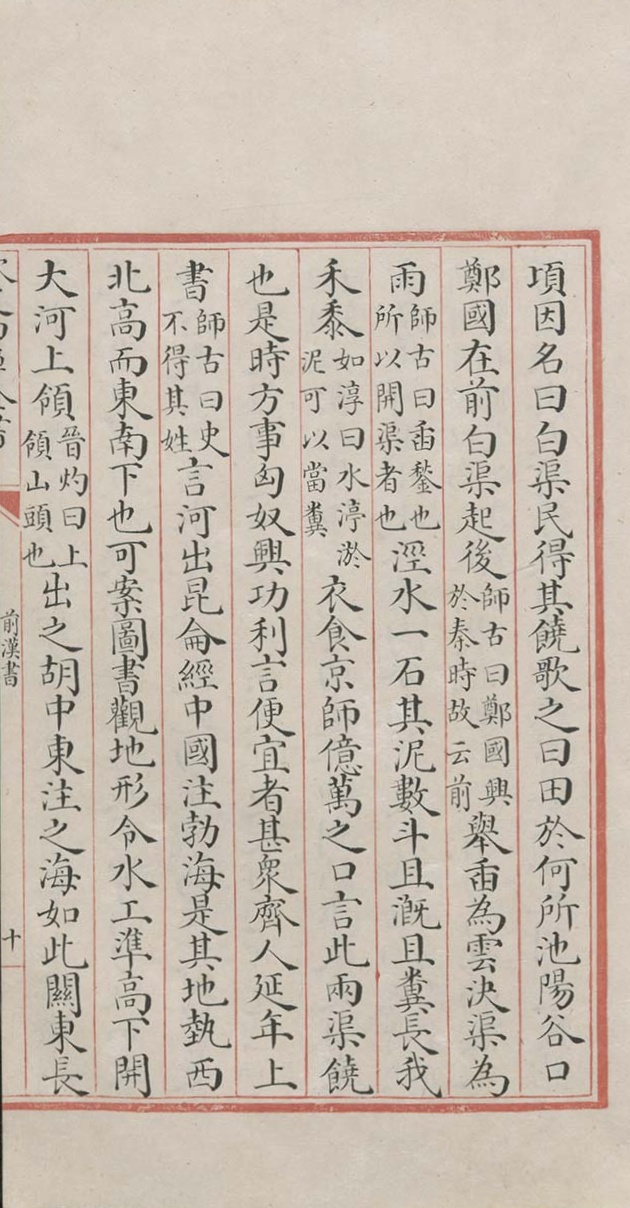 頃因名曰白渠民得其饒歌之曰田於何所池陽谷口
鄭國在前白渠起後師古曰鄭國興於秦時故云前舉臿為雲決渠為
雨師古曰臿鍫也所以開渠者也涇水一石其泥數斗且溉且糞長我
禾黍如淳曰水渟淤泥可以當糞衣食京師億萬之口言此兩渠饒
也是時方事匈奴興功利言便宜者甚衆齊人延年上
書師古曰史不得其姓言河出昆侖經中國注勃海是其地埶西
北高而東南下也可案圖書觀地形令水工準高下開
大河上領晉灼曰上領山頭也出之胡中東注之海如此關東長
前漢書
十